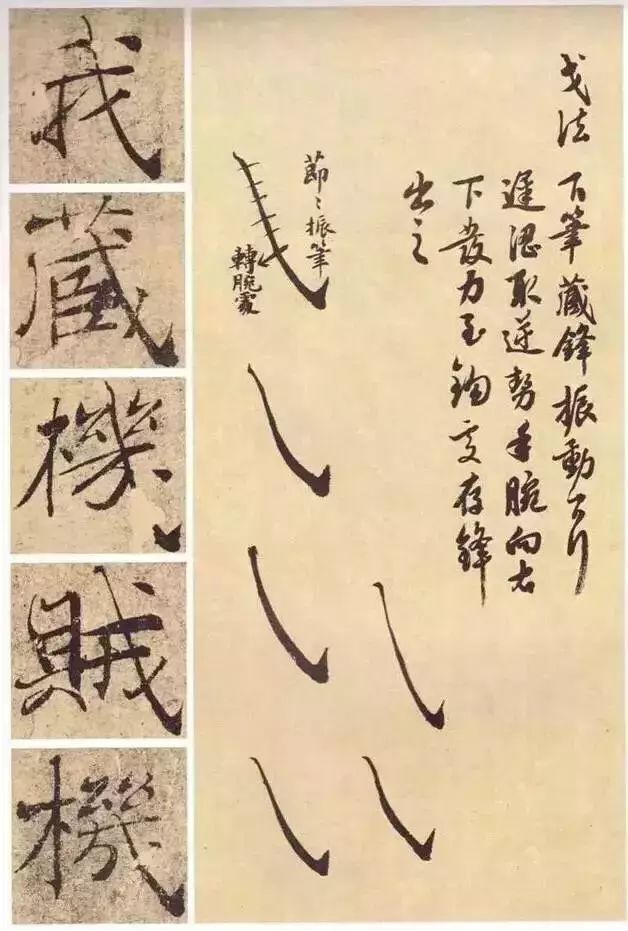 戈法 下筆藏鋒振動而行
遲澀取逆勢手腕向右
下發力至鉤處存鋒
出之
節〻振筆
轉腕處
我
藏
機
賊
機